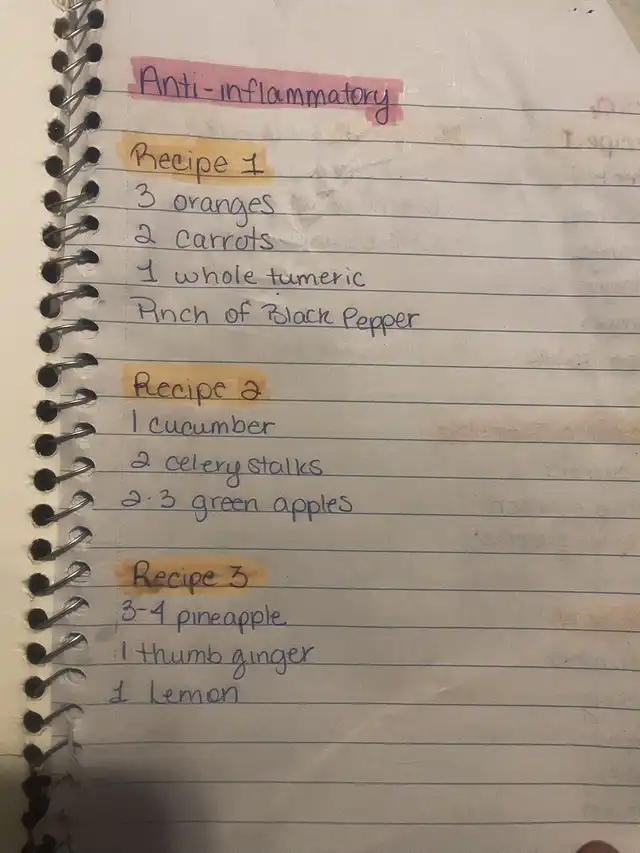 Anti-inflammatory
Recipe 1
3 oranges
2 carrots
1 whole tumeric
Pinch of Black Pepper
Recipe 2
1 cucumber
2 celery stalks
2-3 green apples
Recipe 3
3-4 pineapple
1 thumb ginger
1 Lemon